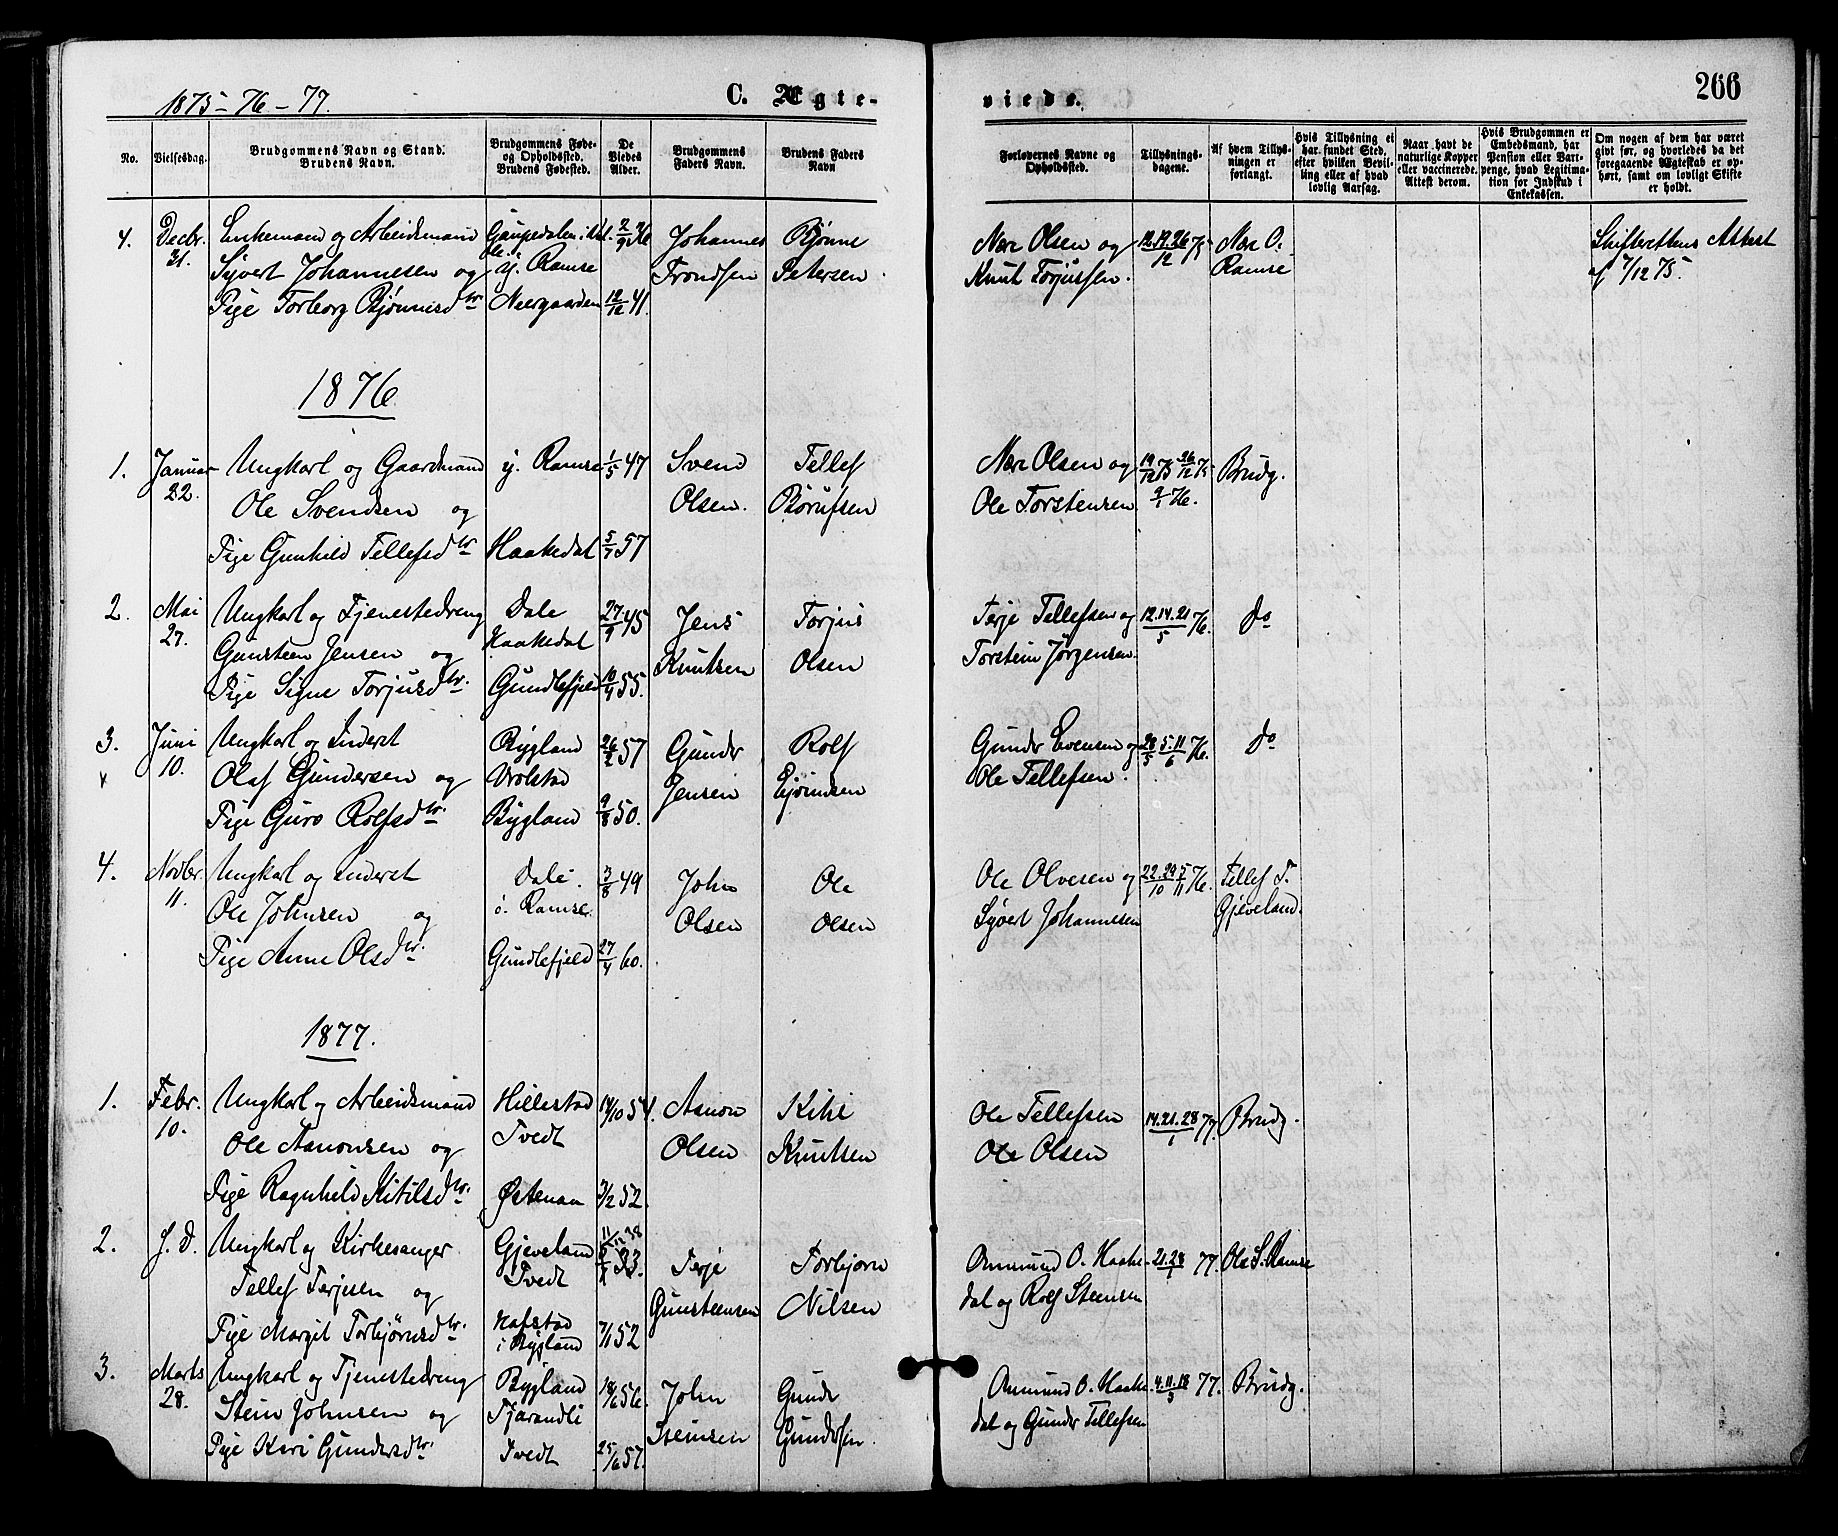 1875-76-77.
C. Ægteviede.
266
No.
Vielsesdag.
Brudgommens Navn og Stand.
Brudens Navn.
Brudgommens Føde-
og Opholdssted.
Brudens Fødested.
De
Viedes
Alder.
Brudgommens
Faders Navn.
Brudens Faders
Navn
Forlovernes Navne og
Opholdssted.
Tillysnings-
dagene.
Af hvem Tillys-
ningen er
forlangt.
Hvis Tillysning ei
har fundet Sted,
efter hvilken Bevil-
ling eller af hvad
lovlig Aarsag.
Naar havt de
naturlige Kopper
eller vaccinerede.
Attest derom.
Hvis Brudgommen er
Embedsmand, har
Pension eller Vart-
penge, hvad Legitima-
tion for Indskud i
Enkekassen.
Om nogen af dem har været
givt før, og hvorledes da det
foregaaende Ægteskab er op-
hørt, samt om lovligt Skifte
er holdt.
4. Decbr. 31. Enkemand og Arbeidsmand
Syvert Johannesen og
Pige Torborg Bjønnesdtr
y. Ramse
Neergaarden
2/9 26
12/12 41.
Johannes
Trondsen
Bjønne
Petersen.
Nere Olsen og
Knut Torjussen.
12.19.26/12 75
Nere O.
Ramse
Skifterettens Attest
af 7/12 75.
1876
1. Januar 22. Ungkarl og Gaardmand
Ole Svendsen og
Pige Gunhild Tellefsdtr
y. Ramse
Haakedal
1/5 47
5/7 57
Svend
Olsen.
Tellef
Børufsen
Nere Olsen og
Ole Torstensen
19/12 75 26/12 75
9/1 76.
Brudg.
2. Mai 27. Ungkarl og Tjenestedreng
Gunsteen Jensen og
Pige Signe Torjusdtr.
Dale
Haakedal
Gundlefjeld
27/9 45
10/4 55.
Jens
Knutsen
Torjus
Olsen
Terje Tellefsen og
Torstein Jørgensen.
12.14.21/5 76.
Do
3. Juni 10. Ungkarl og Inderst
Olaf Gundersen og
Pige Guro Rolfsdtr.
Bygland
Vrolstad
Bygland
26/2 57
9/8 50.
Gunder
Jensen
Rolf
Ejvindsen
Gunder Evensen og
Ole Tellefsen.
28/5 5.11/6 76.
Do
4. Novbr. 11. Ungkarl og Inderst
Ole Johnsen og
Pige Anne Olsdtr.
Dale.
ö. Ramse.
Gundlefjeld
3/8 49
27/4 60.
John
Olsen
Ole
Olsen
Ole Olvesen og
Syvert Johannesen
22.29/10 5/11 76.
Tellef T.
Gjeveland.
1877.
1. Febr. 10. Ungkarl og Arbeidsmand
Ole Aanonsen og
Pige Ragnhild Kitilsdtr.
Hillestad
Tvedt
Østenaa
14/10 54.
3/2 52.
Aanon
Olsen
Kitil
Knutsen
Ole Tellefsen
Ole Olsen
14.21.28/1 77.
Brudg.
2. J. D. Ungkarl og Kirkesanger
Tellef Terjesen og
Pige Margit Torbjørnsdtr.
Gjeveland
Tvedt
Hafstad
i Bygland
11/12 38
33.
7/1 52
Terje
Gunsteensen
Torbjørn
Nilsen
Anmund O. Haake-
dal og Rolf Steensen
21.28/1 77.
Ole S. Ramse
3. Marts 28. Ungkarl og Tjenestedreng
Stein Johnsen og
Pige Kari Gundersdtr.
Bygland
Tjarandli
Tvedt
18/6 56.
25/6 57.
John
Steinsen
Gunder
Gundersen.
Anmund O. Haake-
dal og Gunder Tellefsen
4.11.18/3 77.
Brudg.